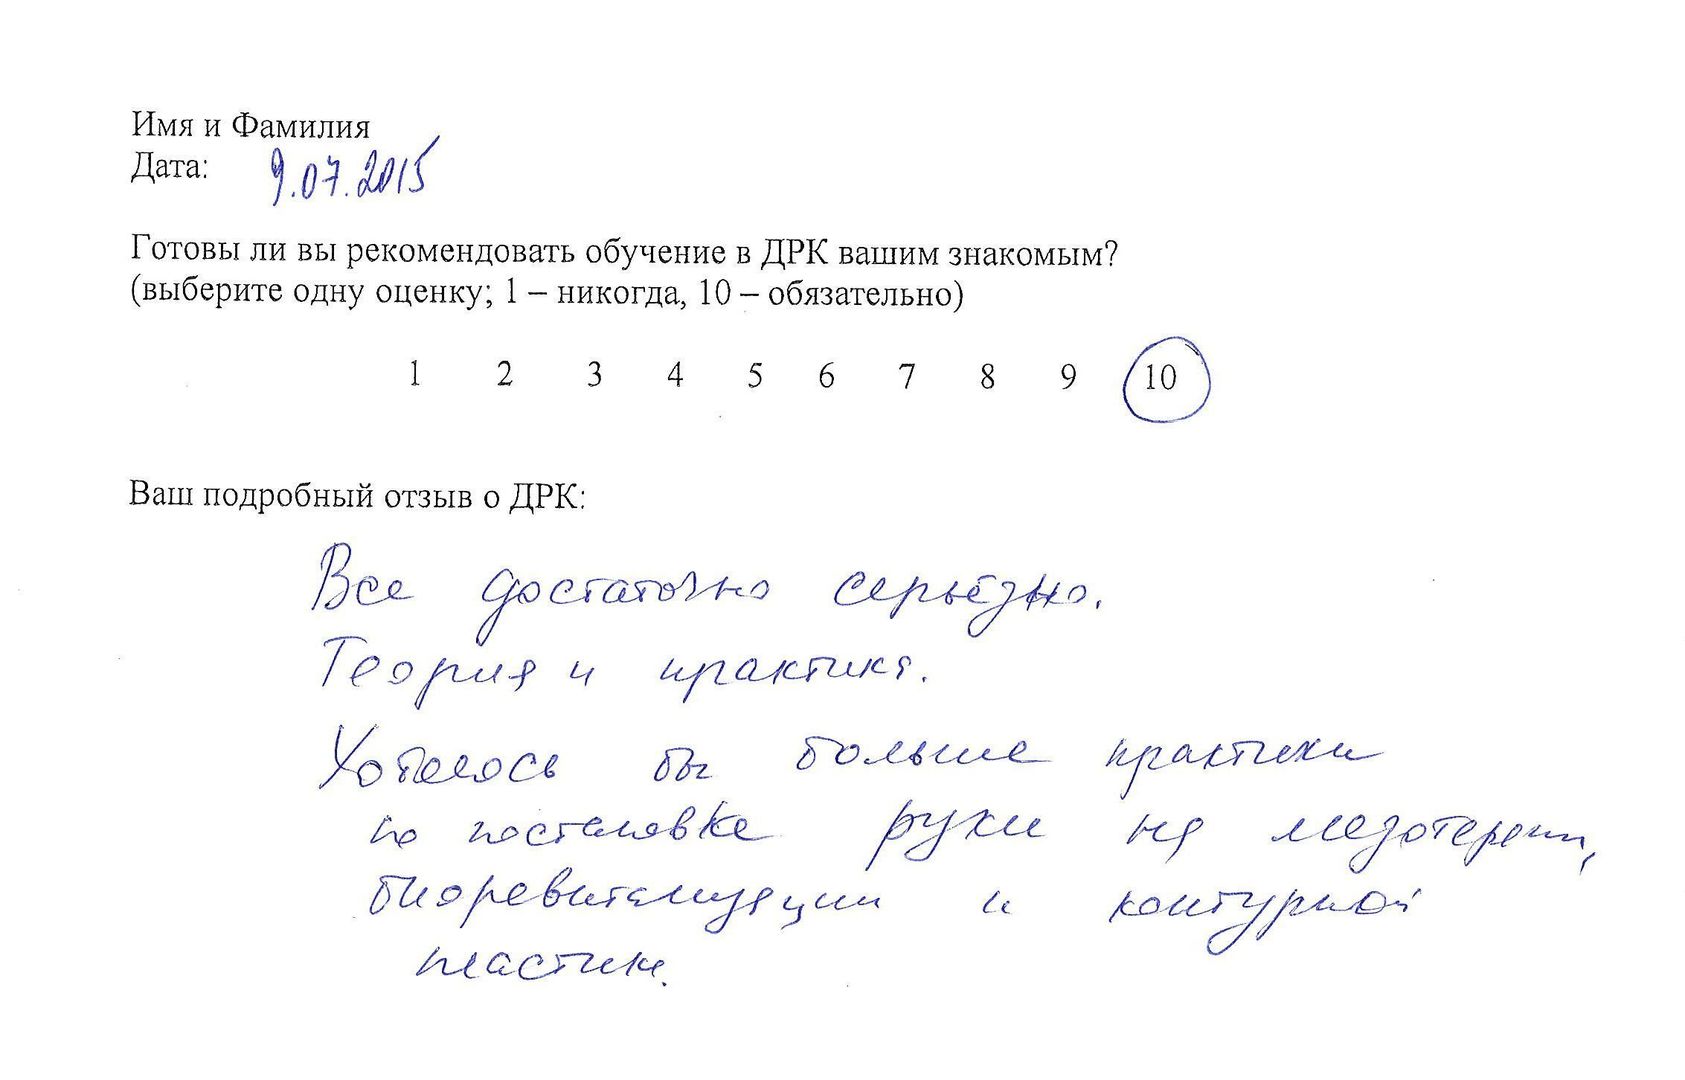 Имя и Фамилия
Дата: 9.07.2015
Готовы ли вы рекомендовать обучение в ДРК вашим знакомым?
(выберите одну оценку; 1 – никогда, 10 – обязательно)
1 2 3 4 5 6 7 8 9 10
Ваш подробный отзыв о ДРК:
Все достаточно серьёзно.
Теория и практика.
Хотелось бы больше практики
по постановке руки на мезотерапии,
биоревитализации и контурной
пластике.